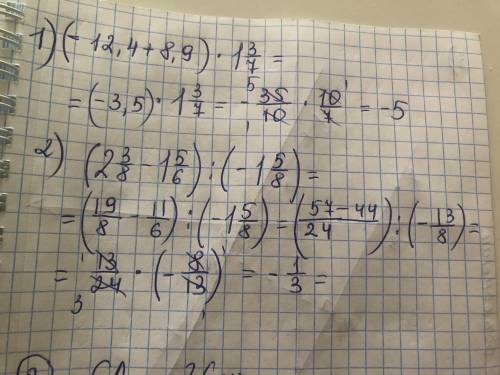 1) (-12,4+8,9) · 1 3/7 =
= (-3,5) · 1 3/7 = - 35/10 · 10/7 = -5
2) (2 3/8 - 1 5/6) : (-1 5/8) =
= (19/8 - 11/6) : (-1 5/8) = (57-44/24) : (-13/8) =
= 13/24 · (-8/13) = -1/3 =